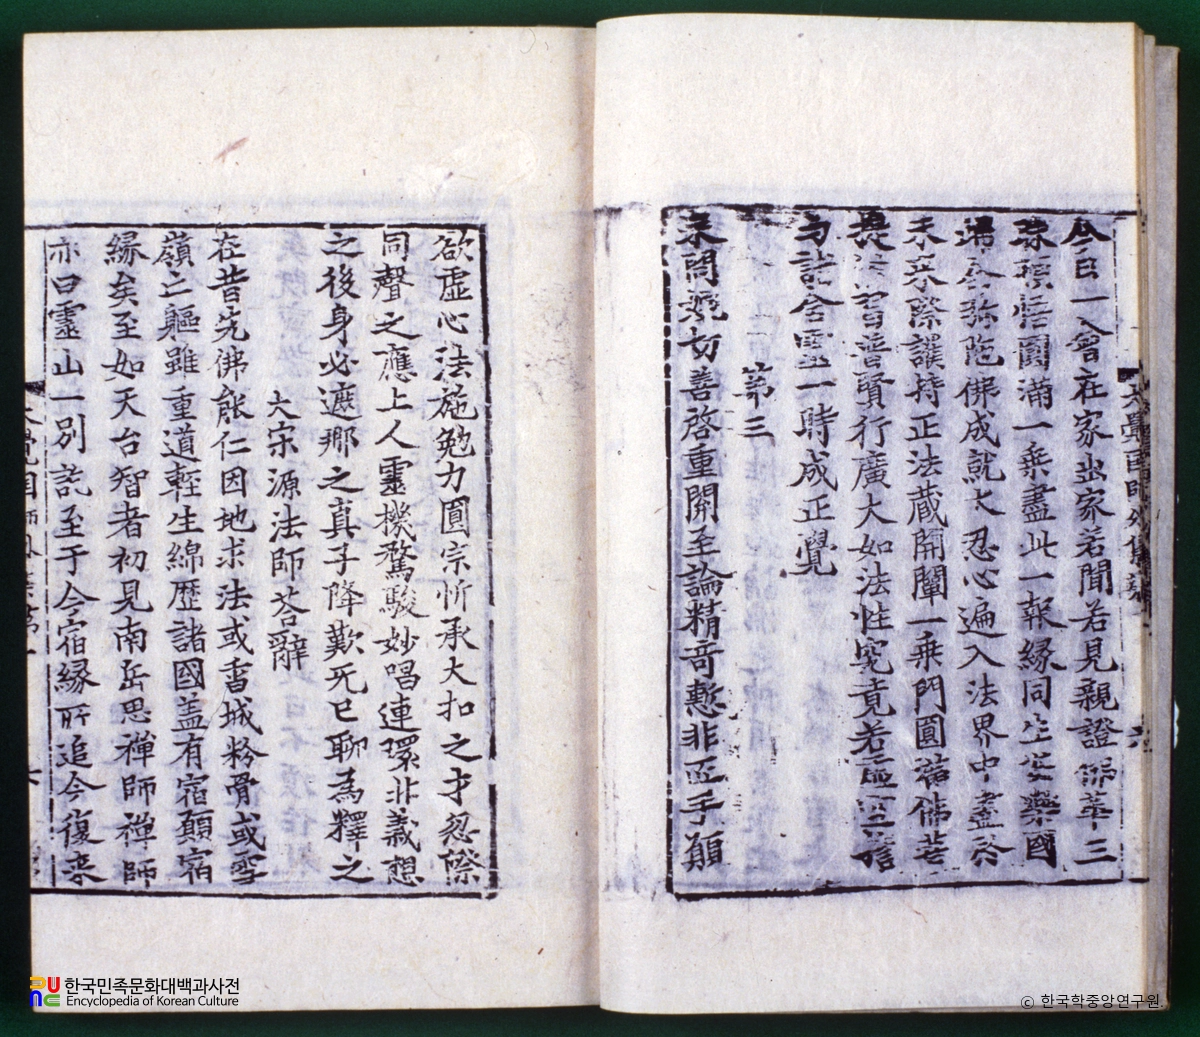 今日一會在家出家若聞若見親證佛華三
昧頓悟圓滿一乘盡此一報緣同生安樂國
彌陀佛成就大忍心遍入法界中盡
未來際護持正法藏開闡一乘門圓
普賢行廣大如法性究竟若虛空
含靈一時成正覺
第三
來問
切善啓重關至論精奇慙非匠手
欲虛心法施勉力圓宗忻承大扣之才忽際
同聲之應上人靈機騖駿妙唱連環非義想
之後身必遮那之真子降歎死已聊為釋之
大宋源法師荅辭
在昔先佛能仁因地求法或香城粉骨或雪
嶺亡軀雖重道輕生綿歷諸國盖有宿願宿
緣矣至如天台智者初見南岳思禪師禪師
亦曰靈山一別訖至于今宿緣所追今復來
한국민족문화대백과사전
Encyclopedia of Korean Culture
© 한국학중앙연구원.